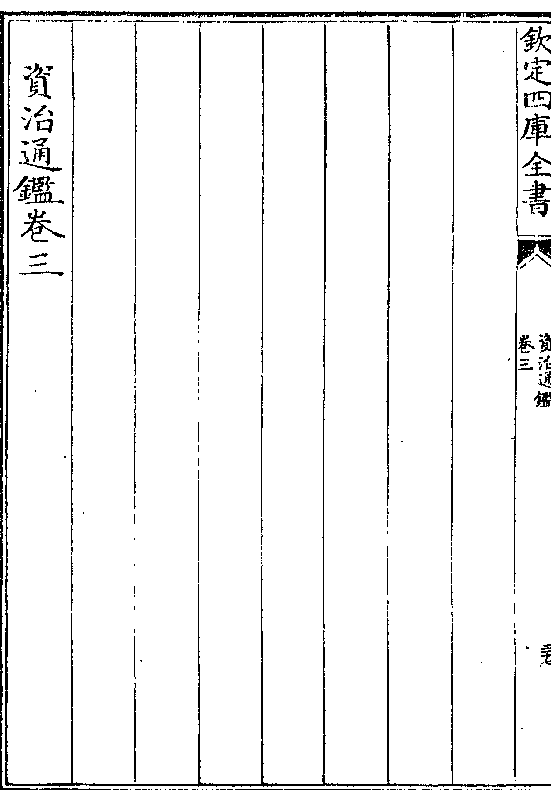 欽定四庫全書
資治通鑑
卷三
資治通鑑卷三